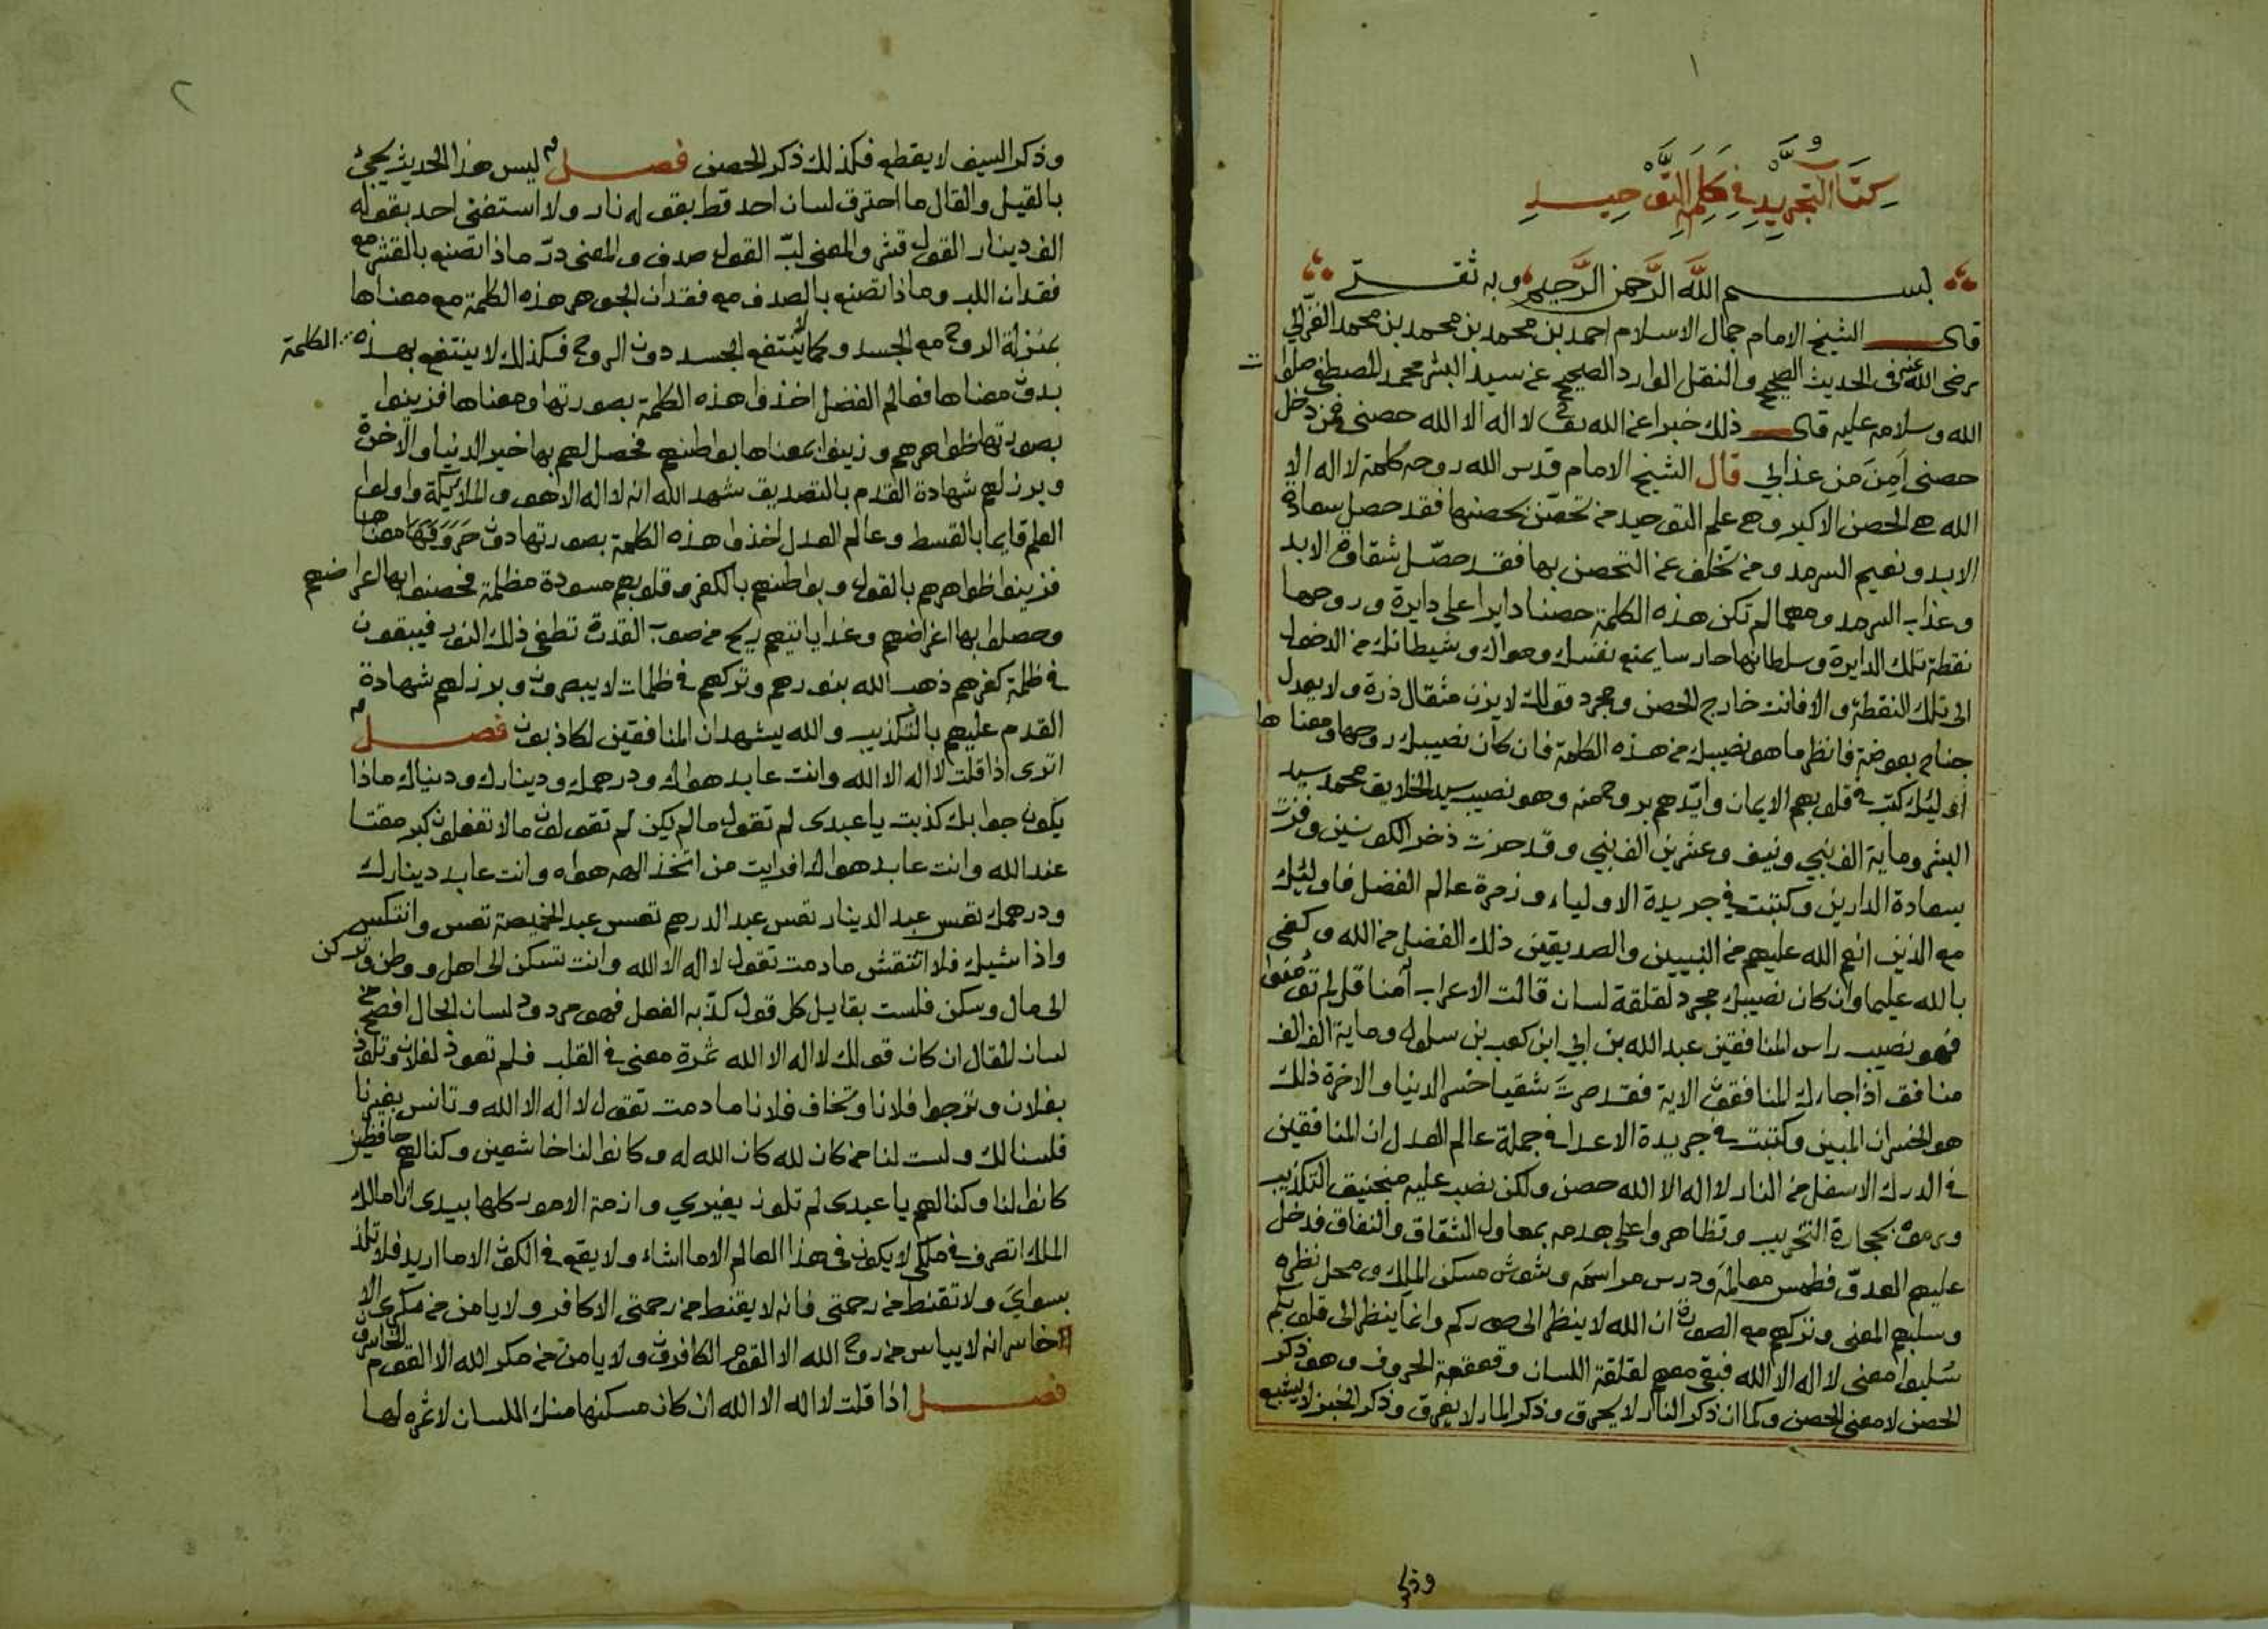 ١
كتاب التجريد في كلمة التوحيد
بسم الله الرحمن الرحيم وبه ثقتي
قال الشيخ الامام جمال الاسلام احمد بن محمد بن محمد بن محمد الغزالي
رضى الله عنه في الحديث الصحيح والنقل الوارد الصحيح عن سيد البشر محمد المصطفى صلوات
الله وسلامه عليه قال ذلك خبرا عن الله تعالى لا اله الا الله حصنى فمن دخل
حصنى اَمِنَ من عذابي قال الشيخ الامام قدس الله روحه كلمة لا اله الا
الله هي الحصن الاكبر وهي علم التوحيد من تحصّن بحصنها فقد حصل سعادة
الابد ونعيم السرمد ومن تخلف عن التحصن بها فقد حصّل شقاوة الابد
وعذاب السرمد ومهما لم تكن هذه الكلمة حصنا دايرا على دايرة وروحها
نقطة تلك الدايرة وسلطانها حارسا يمنع نفسك وهواك وشيطانك من الدخول
الى تلك النقطة والا فانت خارج الحصن ومجرد قولك لا يزن مثقال ذرة ولا يعدل
جناح بعوضة فانظر ما هو نصيبك من هذه الكلمة فان كان نصيبك روحها ومعناها
اوليك كتب في قلوبهم الايمان وايّدهم بروح منه وهو نصيب سيد الخلايق محمد سيد
البشر وماية الف نبي ونيف وعشرين الف نبي وقد حزت ذخر الكونين وفزت
بسعادة الدارين وكتبت في جريدة الاولياء وزمرة عالم الفضل فاوليك
مع الذين انعم الله عليهم من النبيين والصديقين ذلك الفضل من الله وكفى
بالله عليما وان كان نصيبك مجرد لقلقة لسان قالت الاعراب آمنا قل لم تؤمنوا
فهو نصيب راس المنافقين عبد الله بن ابي ابن كعب بن سلول وماية الف الف
منافق اذا جاءك المنافقون الاية فقد صرت شقيا خسر الدنيا والاخرة ذلك
هو الخسران المبين وكتبت في جريدة الاعدا في جملة عالم العدل ان المنافقين
في الدرك الاسفل من النار لا اله الا الله حصن ولكن نصب عليه منجنيق التكذيب
ورموه بحجارة التخريب وتظاهروا على هدمه بمعاول الشقاق والنفاق فدخل
عليهم العدوّ فطمس معالمَه ودرس مراسمَه وشوش مسكن الملك ومحل نظره
وسلبهم المعنى وتركهم مع الصورة ان الله لا ينظر الى صوركم وانما ينظر الى قلوبكم
سُلبوا معنى لا اله الا الله فبقى معهم لقلقة اللسان وقعقعة الحروف وهو ذكر
الحصن لا معنى الحصن وكما ان ذكر النار لا يحرق وذكر الماء لا يغرق وذكر الخبز لا يشبع
وذكر
٢
وذكر السيف لا يقطع فكذلك ذكر الحصن فصل ليس هذا الحديث يجئ
بالقيل والقال ما احترق لسان احد قط بقوله نار ولا استغنى احد بقوله
الف دينار القول قشر والمعنى لبّ القول صدف والمعنى درّ ماذا تصنع بالقشر مع
فقدان اللب وماذا تصنع بالصدف مع فقدان الجوهر هذه الكلمة مع معناها
بمنزلة الروح مع الجسد وكما لا ينتفع الجسد دون الروح فكذلك لا ينتفع بهذه الكلمة
بدون معناها فعالم الفضل اخذوا هذه الكلمة بصورتها ومعناها فزينوا
بصورتها ظواهرهم وزينوا بمعناها بواطنهم فحصل لهم بها خير الدنيا والآخرة
وبرز لهم شهادة القدم بالتصديق شهد الله انه لا اله الا هو والملائكة واولوا
العلم قايما بالقسط وعالم العدل اخذوا هذه الكلمة بصورتها دون معناها
فزينوا ظواهرهم بالقول وبواطنهم بالكفر وقلوبهم مسودة مظلمة فحصنوا بها اعراضهم
وحصلوا بها اغراضهم وغدا ياتيهم ريح من صوب القدرة تطفى ذلك النور فيبقون
في ظلمة كفرهم ذهب الله بنورهم وتركهم في ظلمات لا يبصرون وبرز لهم شهادة
القدم عليهم بالتكذيب والله يشهد ان المنافقين لكاذبون فصل
اترى اذا قلت لا اله الا الله وانت عابد هواك ودرهمك ودينارك ودنياك ماذا
يكون جوابك كذبت يا عبدى لم تقول ما لم يكن لم تقولون ما لا تفعلون كبر مقتا
عند الله وانت عابد هواك افرايت من اتخذ الهه هواه وانت عابد دينارك
ودرهمك تعس عبد الدينار تعس عبد الدرهم تعس عبد الخميصة تعس وانتكس
واذا شيك فلا انتقش ما دمت تقول لا اله الا الله وانت تسكن الى اهل ووطن وتركن
الى مال وسكن فلست بقايل كل قول كذّبه الفعل فهو مردود لسان الحال افصح من
لسان المقال ان كان قولك لا اله الا الله ثمرة معنى في القلب فلم تعوذ لفلان وتلوذ
بفلان وترجوا فلانا وتخاف فلانا ما دمت تقول لا اله الا الله وتانس بغيرنا
فلسنا لك ولست لنا من كان لله كان الله له وكانوا لنا خاشعين وكنا لهم حافظين
كانوا لنا وكنا لهم يا عبدى لم تلوذ بغيري وازمة الامور كلها بيدى انا مالك
الملك اتصرف في ملكى لا يكون في هذا العالم الا ما اشاء ولا يقع في الكون الا ما اريد فلا تلذ
بسواىَ ولا تقنط من رحمتى فانه لا يقنط من رحمتى الا كافر ولا يامن من مكرى الا
خاسر انه لا يياس من روح الله الا القوم الكافرون ولا يامن من مكر الله الا القوم الخاسرون
فصل اذا قلت لا اله الا الله ان كان مسكنها منك اللسان لا ثمرة لها